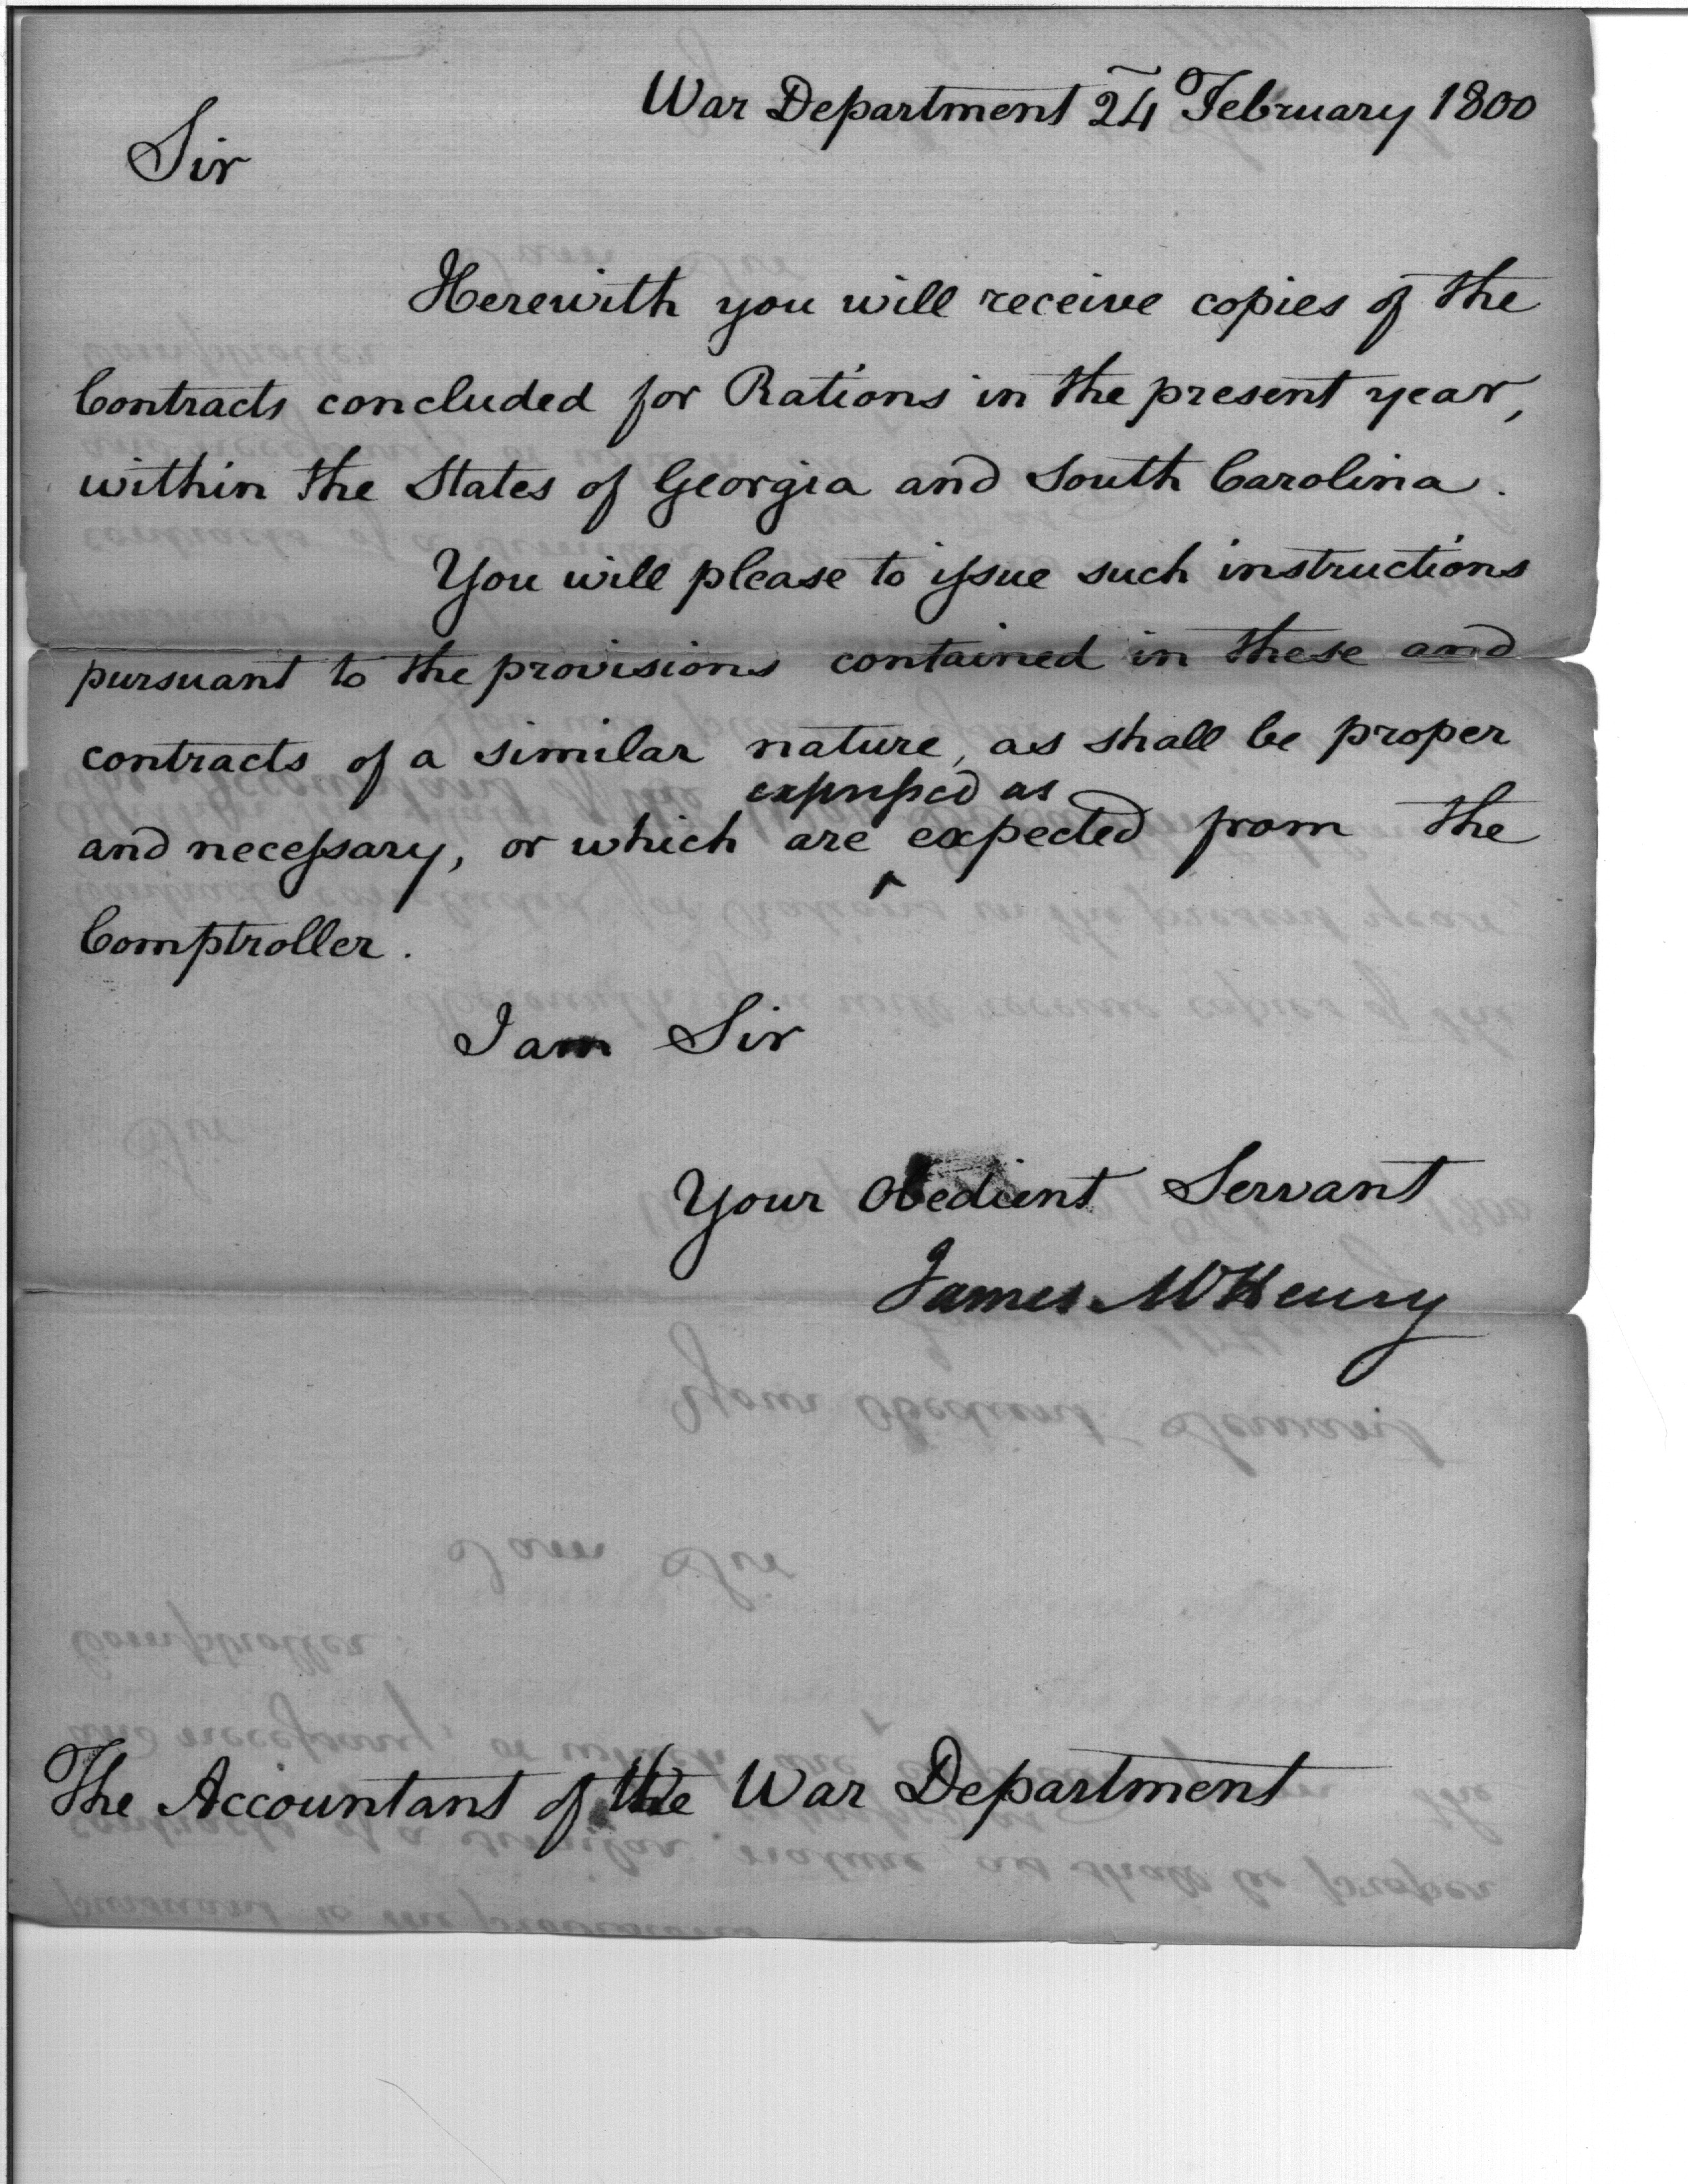 War Department 24 February 1800
Sir
Herewith you will receive copies of the
Contracts concluded for Rations in the present year,
within the States of Georgia and South Carolina.
You will please to issue such instructions
pursuant to the provisions contained in these and
contracts of a similar nature, as shall be proper
expressed as
and necessary, or which are ^ expected from the
Comptroller.
I am Sir
Your Obedient Servant
James McHenry
The Accountant of the War Department